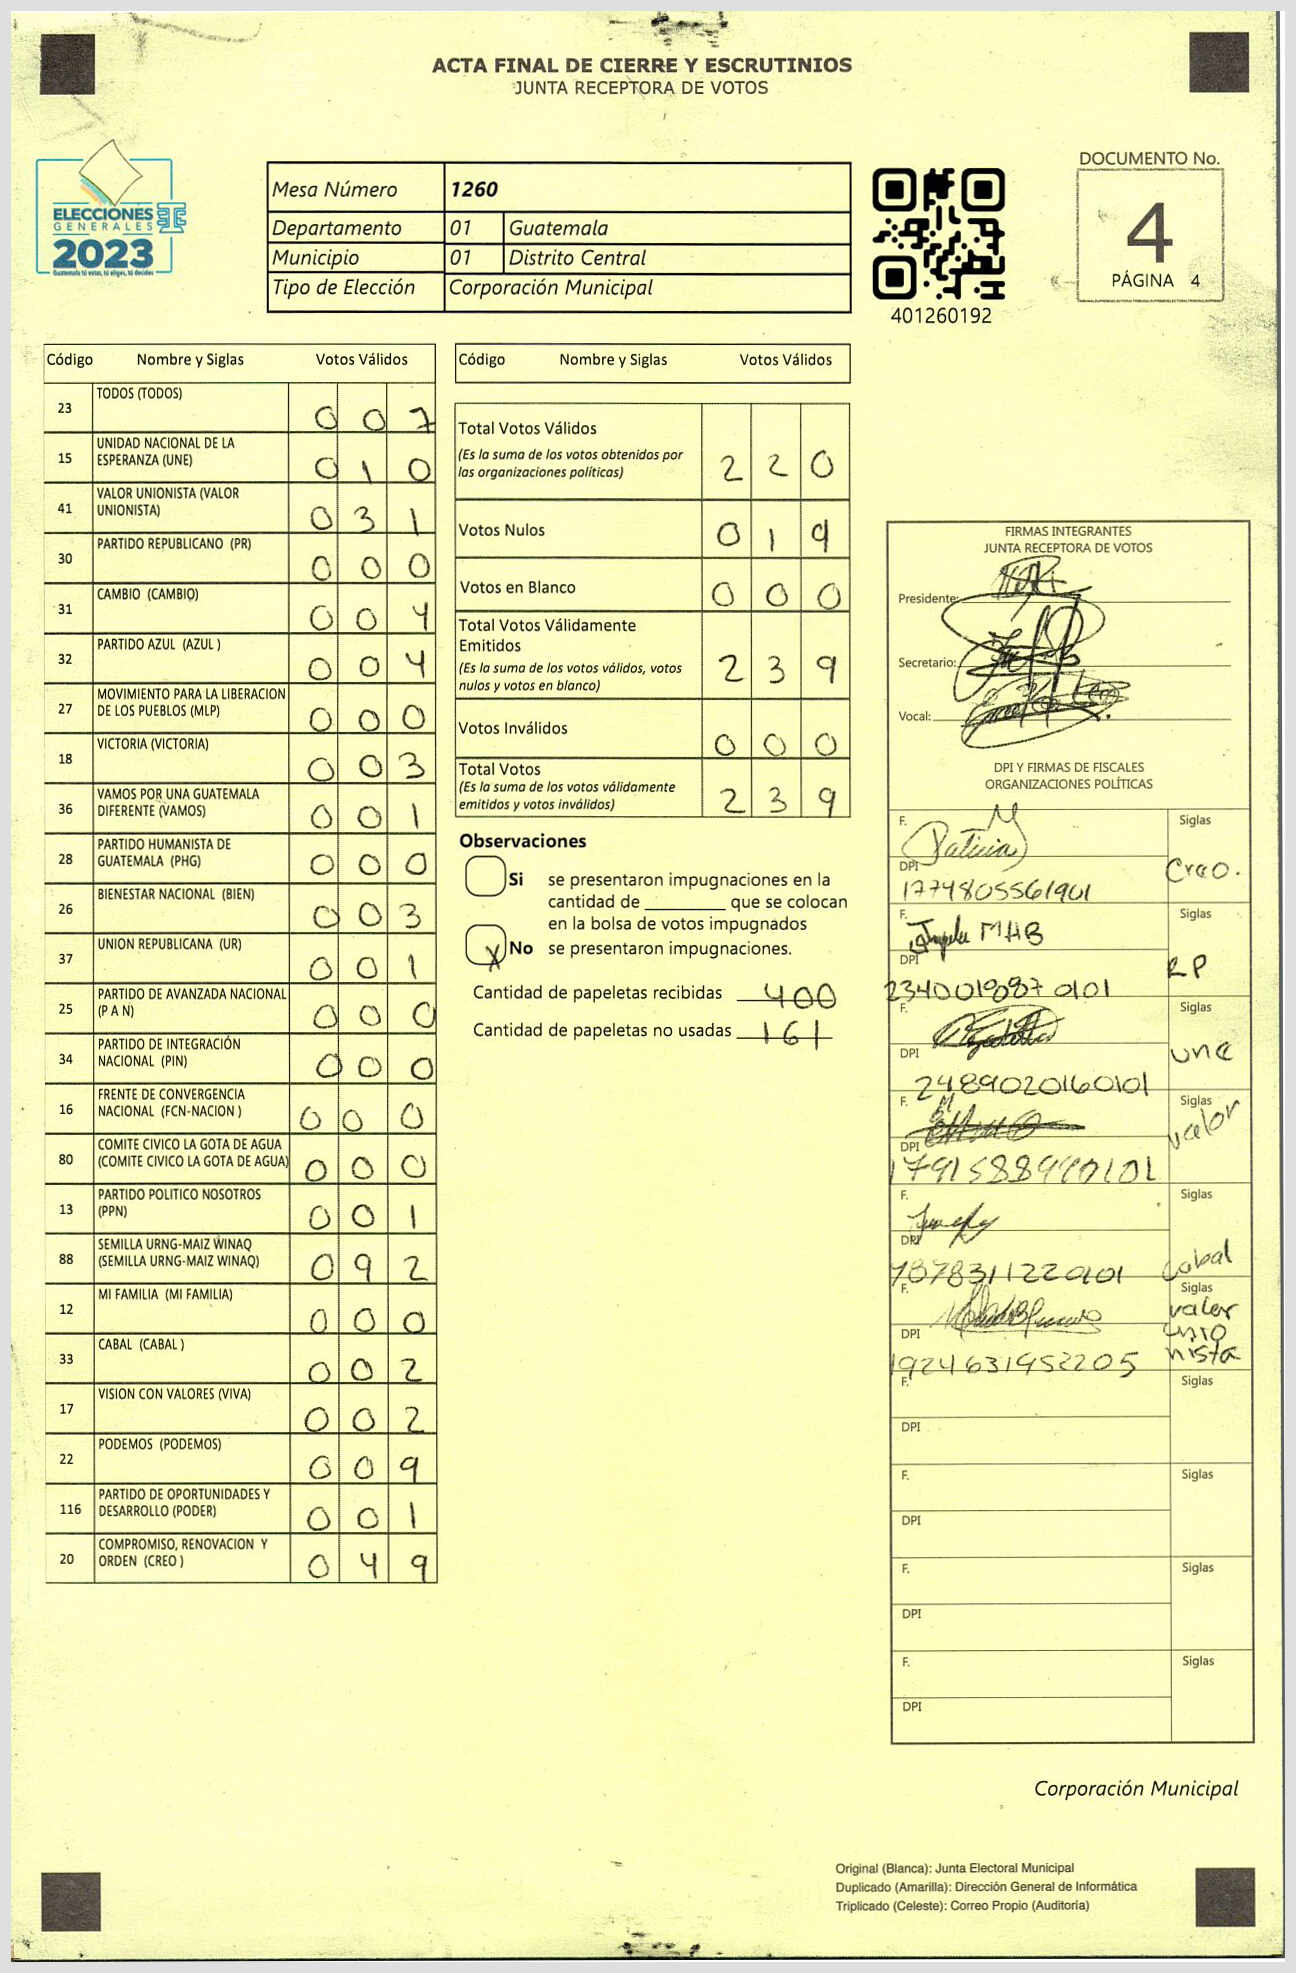 ACTA FINAL DE CIERRE Y ESCRUTINIOS
JUNTA RECEPTORA DE VOTOS
ELECCIONES
GENERALES
2023
Guatemala tú votas, tú eliges, tú decides
Mesa Número 1260
Departamento 01 Guatemala
Municipio 01 Distrito Central
Tipo de Elección Corporación Municipal
401260192
DOCUMENTO No.
4
PÁGINA 4
Código Nombre y Siglas Votos Válidos
23 TODOS (TODOS) 0 0 7
15 UNIDAD NACIONAL DE LA ESPERANZA (UNE) 0 1 0
41 VALOR UNIONISTA (VALOR UNIONISTA) 0 3 1
30 PARTIDO REPUBLICANO (PR) 0 0 0
31 CAMBIO (CAMBIO) 0 0 4
32 PARTIDO AZUL (AZUL ) 0 0 4
27 MOVIMIENTO PARA LA LIBERACION DE LOS PUEBLOS (MLP) 0 0 0
18 VICTORIA (VICTORIA) 0 0 3
36 VAMOS POR UNA GUATEMALA DIFERENTE (VAMOS) 0 0 1
28 PARTIDO HUMANISTA DE GUATEMALA (PHG) 0 0 0
26 BIENESTAR NACIONAL (BIEN) 0 0 3
37 UNION REPUBLICANA (UR) 0 0 1
25 PARTIDO DE AVANZADA NACIONAL (P A N) 0 0 0
34 PARTIDO DE INTEGRACIÓN NACIONAL (PIN) 0 0 0
16 FRENTE DE CONVERGENCIA NACIONAL (FCN-NACION ) 0 0 0
80 COMITE CIVICO LA GOTA DE AGUA (COMITE CIVICO LA GOTA DE AGUA) 0 0 0
13 PARTIDO POLITICO NOSOTROS (PPN) 0 0 1
88 SEMILLA URNG-MAIZ WINAQ (SEMILLA URNG-MAIZ WINAQ) 0 9 2
12 MI FAMILIA (MI FAMILIA) 0 0 0
33 CABAL (CABAL ) 0 0 2
17 VISION CON VALORES (VIVA) 0 0 2
22 PODEMOS (PODEMOS) 0 0 9
116 PARTIDO DE OPORTUNIDADES Y DESARROLLO (PODER) 0 0 1
20 COMPROMISO, RENOVACION Y ORDEN (CREO ) 0 4 9
Código Nombre y Siglas Votos Válidos
Total Votos Válidos 2 2 0
(Es la suma de los votos obtenidos por
las organizaciones políticas)
Votos Nulos 0 1 9
Votos en Blanco 0 0 0
Total Votos Válidamente
Emitidos 2 3 9
(Es la suma de los votos válidos, votos
nulos y votos en blanco)
Votos Inválidos 0 0 0
Total Votos 2 3 9
(Es la suma de los votos válidamente
emitidos y votos inválidos)
Observaciones
Si se presentaron impugnaciones en la
cantidad de ________ que se colocan
en la bolsa de votos impugnados
X No se presentaron impugnaciones.
Cantidad de papeletas recibidas 400
Cantidad de papeletas no usadas 161
FIRMAS INTEGRANTES
JUNTA RECEPTORA DE VOTOS
Presidente:
Secretario:
Vocal:
DPI Y FIRMAS DE FISCALES
ORGANIZACIONES POLÍTICAS
F. Patricia Siglas
DPI 1774805561901 Creo.
F. MHB Siglas
DPI 2340019870101 RP
F. Siglas
DPI 2489020160101 une
F. Siglas
DPI valor
F. Siglas
DPI Cabal
F. Siglas
DPI 1924631952205 valor unio nista
F. Siglas
DPI
F. Siglas
DPI
F. Siglas
DPI
F. Siglas
DPI
Corporación Municipal
Original (Blanca): Junta Electoral Municipal
Duplicado (Amarilla): Dirección General de Informática
Triplicado (Celeste): Correo Propio (Auditoría)